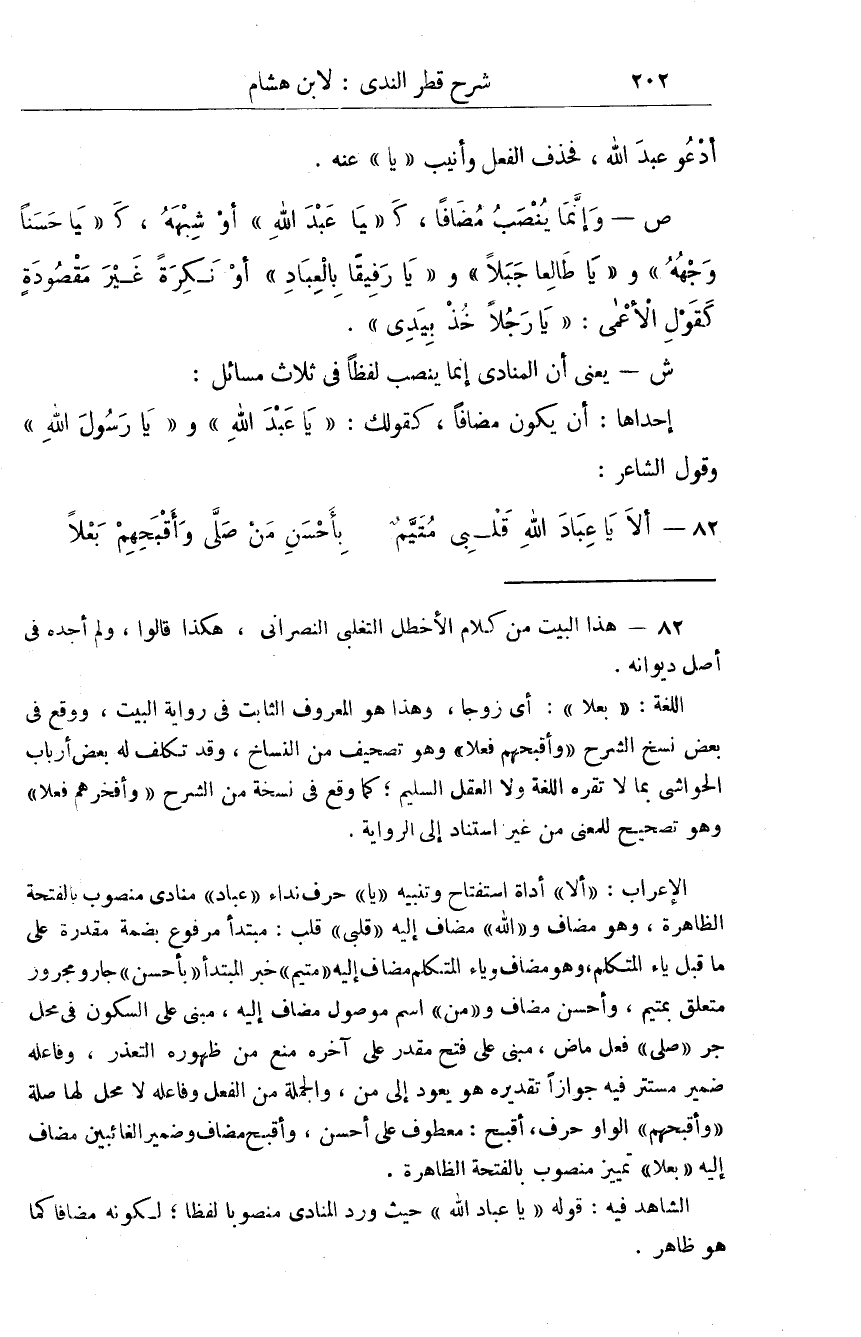 ٢٠٢ شرح قطر الندى : لابن هشام
أدْعُو عبدَ الله ، فحذف الفعل وأنيب « يا » عنه .
ص — وَإِنَّمَا يُنْصَبُ مُضَافًا ، كَـ « يَا عَبْدَ اللهِ » أوْ شِبْهَهُ ، كَـ « يَا حَسَناً
وَجْهُهُ » و « يَا طَالِعا جَبَلاً » و « يَا رَفِيقًا بِالْعِبَادِ » أوْ نَكِرَةً غَيْرَ مَقْصُودَةٍ
كَقَوْلِ الْأعْمَى : « يَا رَجُلاً خُذْ بِيَدِى » .
ش — يعنى أن المنادى إنما ينصب لفظاً فى ثلاث مسائل :
إحداها : أن يكون مضافاً ، كقولك : « يَا عَبْدَ اللهِ » و « يَا رَسُولَ اللهِ »
وقول الشاعر :
٨٢ — ألاَ يَا عِبَادَ اللهِ قَلْبِى مُتَيَّمٌ بِأَحْسَنِ مَنْ صَلَّى وَأَقْبَحِهِمْ بَعْلاً
٨٢ — هذا البيت من كلام الأخطل التغلبى النصرانى ، هكذا قالوا ، ولم أجده فى
أصل ديوانه .
اللغة : « بعلا » : أى زوجا ، وهذا هو المعروف الثابت فى رواية البيت ، ووقع فى
بعض نسخ الشرح «وأقبحهم فعلا» وهو تصحيف من النساخ ، وقد تكلف له بعض أرباب
الحواشى بما لا تقره اللغة ولا العقل السليم ؛ كما وقع فى نسخة من الشرح « وأفخرهم فعلا»
وهو تصحيح للمعنى من غير استناد إلى الرواية .
الإعراب : «ألا» أداة استفتاح وتنبيه «يا» حرف نداء «عباد» منادى منصوب بالفتحة
الظاهرة ، وهو مضاف و«الله» مضاف إليه «قلبى» قلب : مبتدأ مرفوع بضمة مقدرة على
ما قبل ياء المتكلم،وهو مضاف وياء المتكلم مضاف إليه«متيم»خبر المبتدأ«بأحسن»جار ومجرور
متعلق بمتيم ، وأحسن مضاف و«من» اسم موصول مضاف إليه ، مبنى على السكون فى محل
جر «صلى» فعل ماض ، مبنى على فتح مقدر على آخره منع من ظهوره التعذر ، وفاعله
ضمير مستتر فيه جوازاً تقديره هو يعود إلى من ، والجملة من الفعل وفاعله لا محل لها صلة
«وأقبحهم» الواو حرف، أقبح : معطوف على أحسن ، وأقبح مضاف وضمير الغائبين مضاف
إليه « بعلا» تمييز منصوب بالفتحة الظاهرة .
الشاهد فيه : قوله « يا عباد الله » حيث ورد المنادى منصوبا لفظا ؛ لكونه مضافا كما
هو ظاهر .